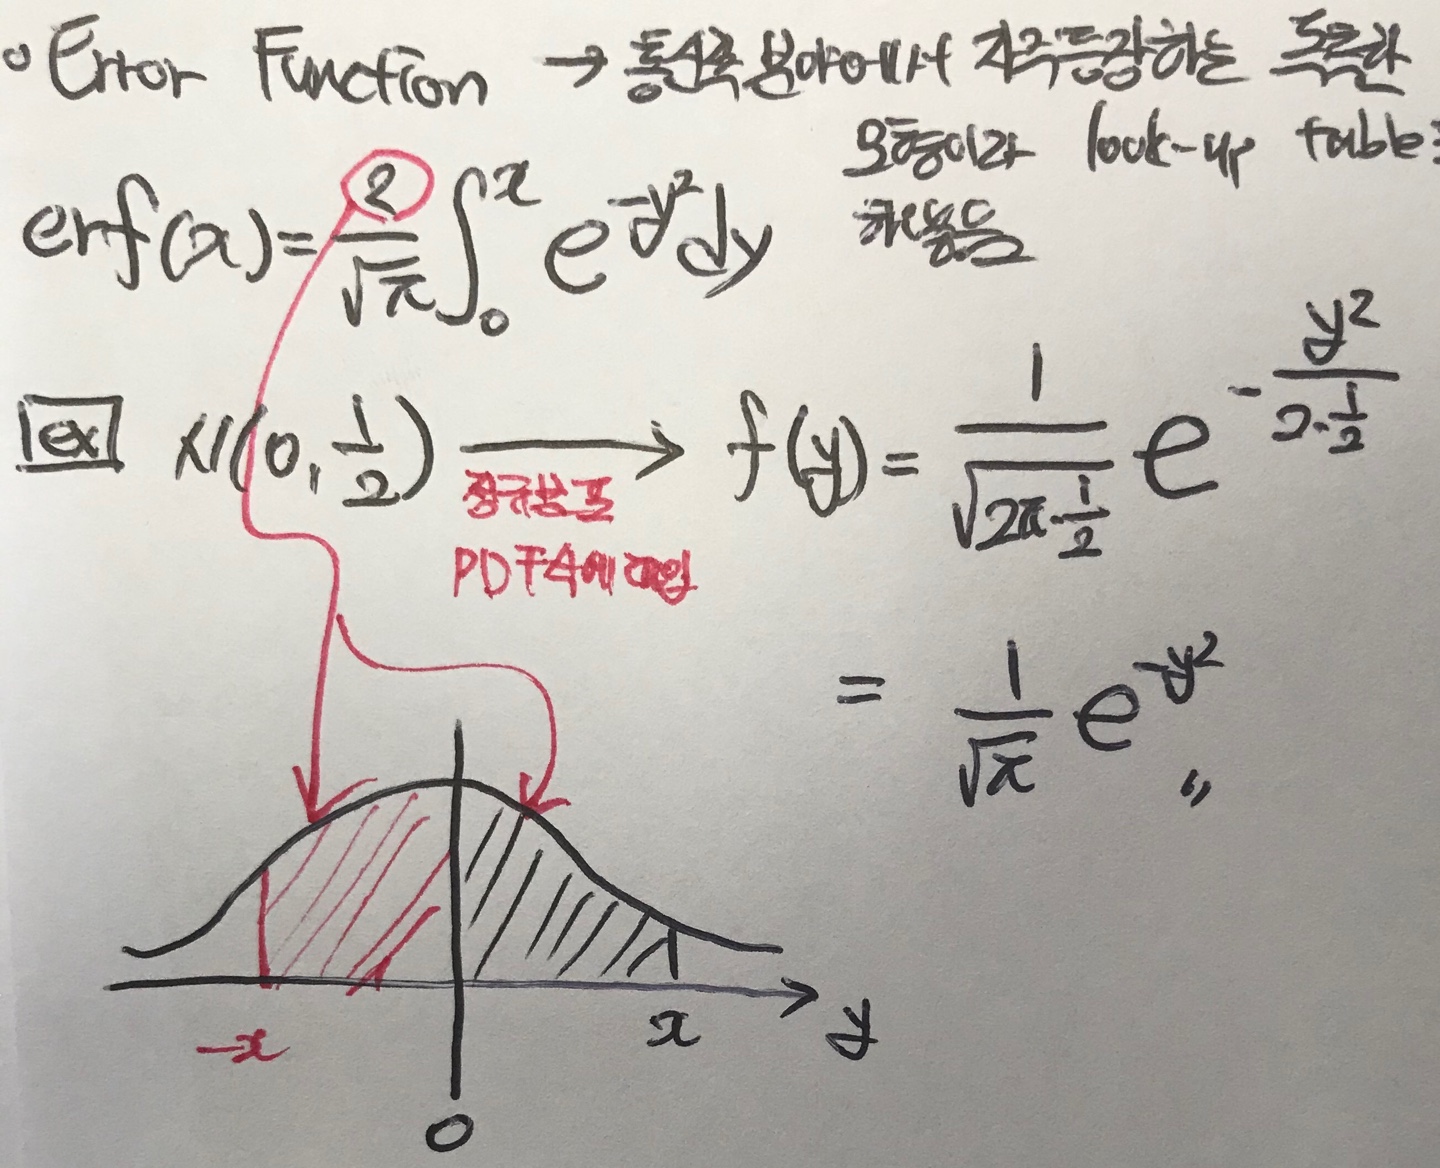 o Error Function → 통신쪽 분야에서 자주등장하는 독특한
모형이라 look-up table로
해놓음
erf(x) = 2/√π ∫₀ˣ e^{-y²}dy
ex N(0, 1/2) → f(y) = 1/√(2π·1/2) e^{-y²/(2·1/2)}
정규분포
PDF식에 대입
= 1/√π e^{-y²} 〃
-x
x
y
0